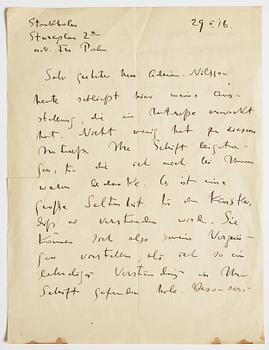 Stockholm 29 I 16.
Stureplan 2
Sehr geehrter Herr Adrian-Nilsson,
heute schließt hier meine Aus-
stellung, die viel Interesse erweckt
hat. Nicht wenig hat zu diesem
Interesse Ihre Schrift beigetra-
gen, für die ich mich bei Ihnen
warm bedanke. Es ist eine
große Seltenheit für den Künstler,
daß er verstanden wird. Sie
können sich also mein Vergnü-
gen vorstellen, als ich so ein
lebendiges Verständnis in Ihrer
Schrift gefunden habe. Besonders